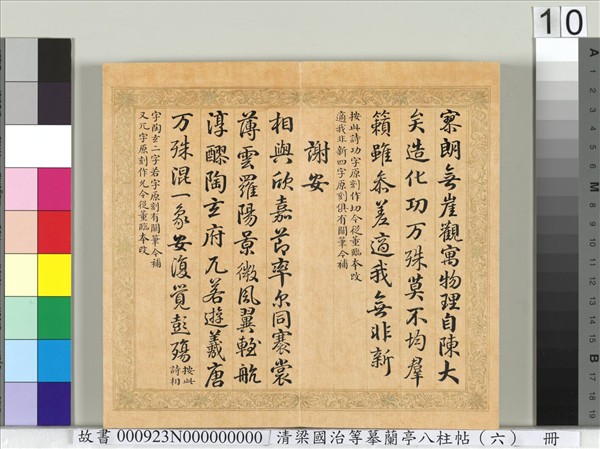 寥朗無崖觀寓物理自陳大
矣造化功万殊莫不均羣
籟雖參差適我無非新
按此詩功字原刻作切今從董臨本改
適我非新四字原刻俱有闕筆今補
謝安
相與欣嘉節率尔同褰裳
薄雲羅陽景微風翼輕航
淳醪陶玄府兀若遊羲唐
万殊混一象安復覺彭殤
按此
詩相
字陶玄二字若字原刻有闕筆今補
又兀字原刻作允今從董臨本改
10
故書 000923N000000000 清梁國治等摹蘭亭八柱帖（六） 冊
A 1 2 3 4 5 6 7 8 9 10 11 12 13 14 15 B 17 18 19
M